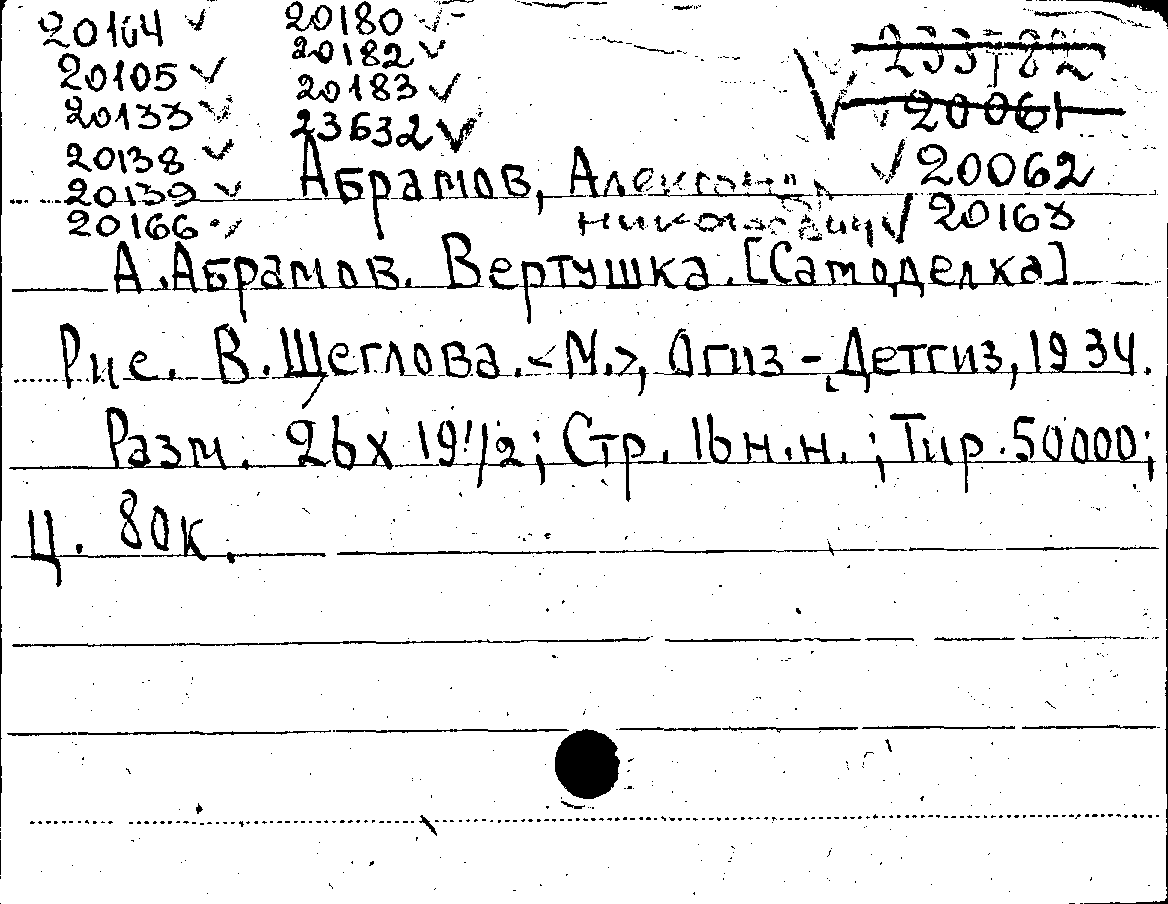 20164 ✓ 20180 ✓ 233782
20105 ✓ 20182 ✓ 20061
20133 ✓ 20183 ✓ ✓ 20062
20138 ✓ 23632 ✓ ✓ 20163
20139 ✓
20166 ✓
Абрамов, Александр
Николаевич
А. Абрамов. Вертушка. [Самоделка]
Рис. В. Щеглова. <М.>, Огиз - Детгиз, 1934.
Разм. 26х 19 1/2; Стр. 16 н.н. ; Тир. 50000;
Ц. 80к.